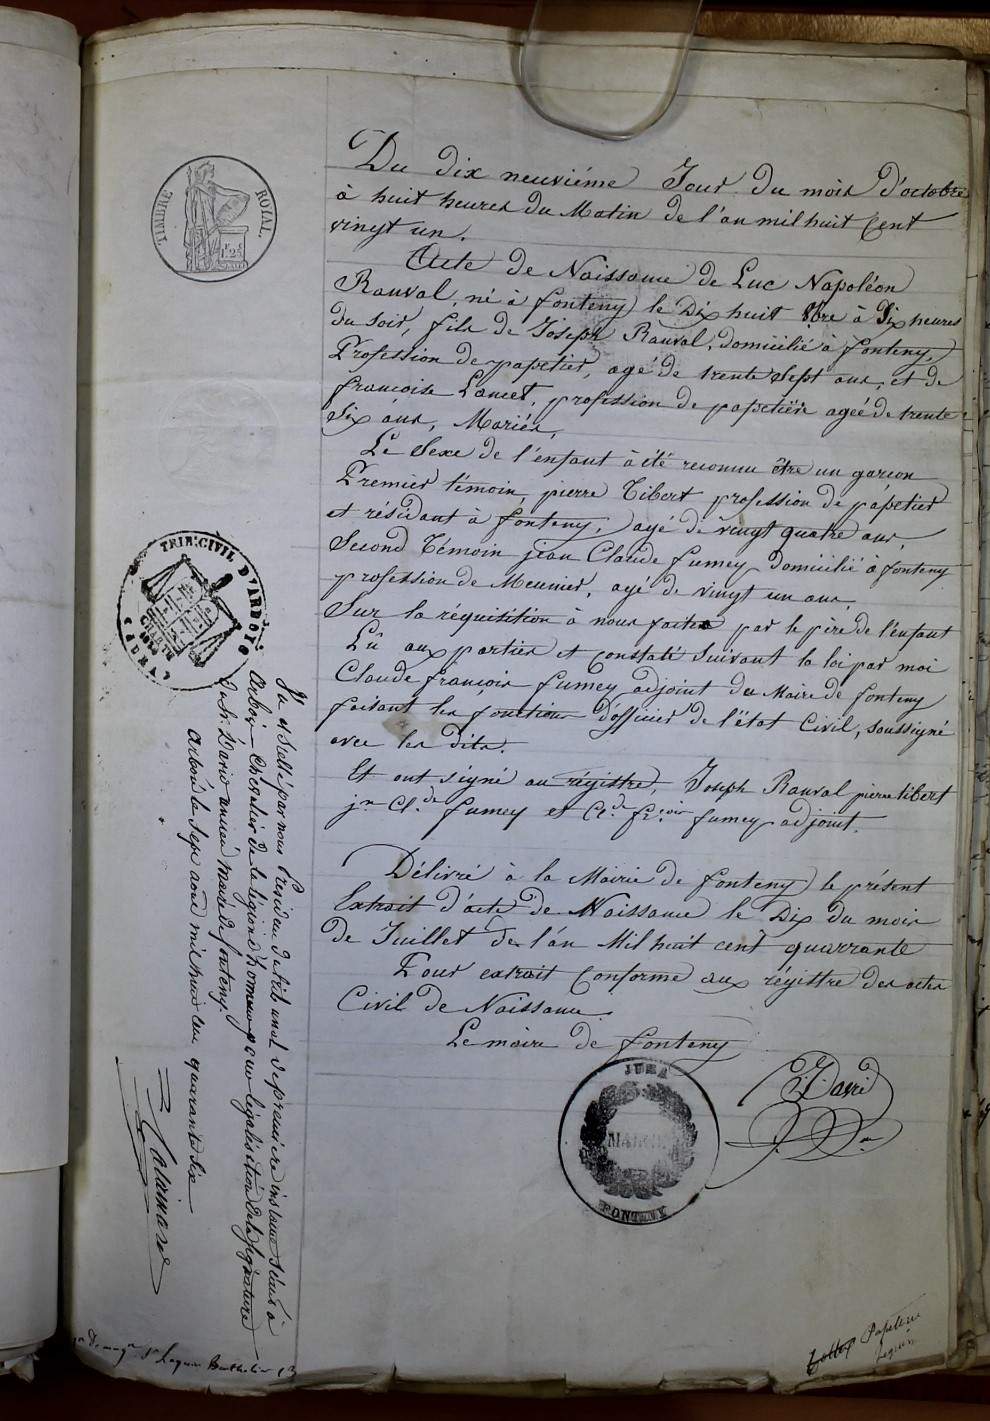 TIMBRE ROYAL.
1f.25
Du dix neuviéme Jour du mois d'octobre
à huit heures du Matin de l'an mil huit Cent
vingt un.
Acte de Naissance de Luc Napoléon
Rauval, né à fonteny le Dix huit 8bre à Six heures
du soir, fils de Joseph Rauval, domicilié à fonteny,
Profession de papetier, agé de trente Sept ans, et de
francoise Lancet, profession de papetiére ageé de trente
Six ans, Mariés,
Le Sexe de l'enfant à été reconnu être un garcon
Premier témoin, pierre Tibert profession de papetier
et résidant à fonteny, agé de vingt quatre ans,
Second Témoin jean Claude fumey domicilié à fonteny
profession de Meunier, agé de vingt un ans,
Sur la réquisition à nous faite par le pére de l'enfant
Lû aux parties et Constaté suivant la loi par moi
Claude francois fumey adjoint du Maire de fonteny
faisant les fonctions d'officier de l'état Civil, soussigné
avec les dits.
Et ont signé au régistre, Joseph Rauval pierre tibert
jn Cl.de fumey et Cl.de fr.cois fumey adjoint.
Délivré à la Mairie de fonteny le présent
Extrait d'acte de Naissance le Dix du mois
de Juillet de l'an Mil huit cent quarrante
Pour extrait Conforme aux régistre des actes
Civil de Naissance.
Le maire de fonteny
David
JURA
MAIRIE
FONTENY
TRIB: CIVIL D'ARBOIS
CHARTE
1830
( JURA )
Vu et Scellé par nous Président du tribunal de première instance séant à
arbois Chevalier de la légion d'honneur pour légalisation de la signature
du Sr. David ancien maire de fonteny.
arbois le Sept août mil huit cent quarante Six
Papeterie